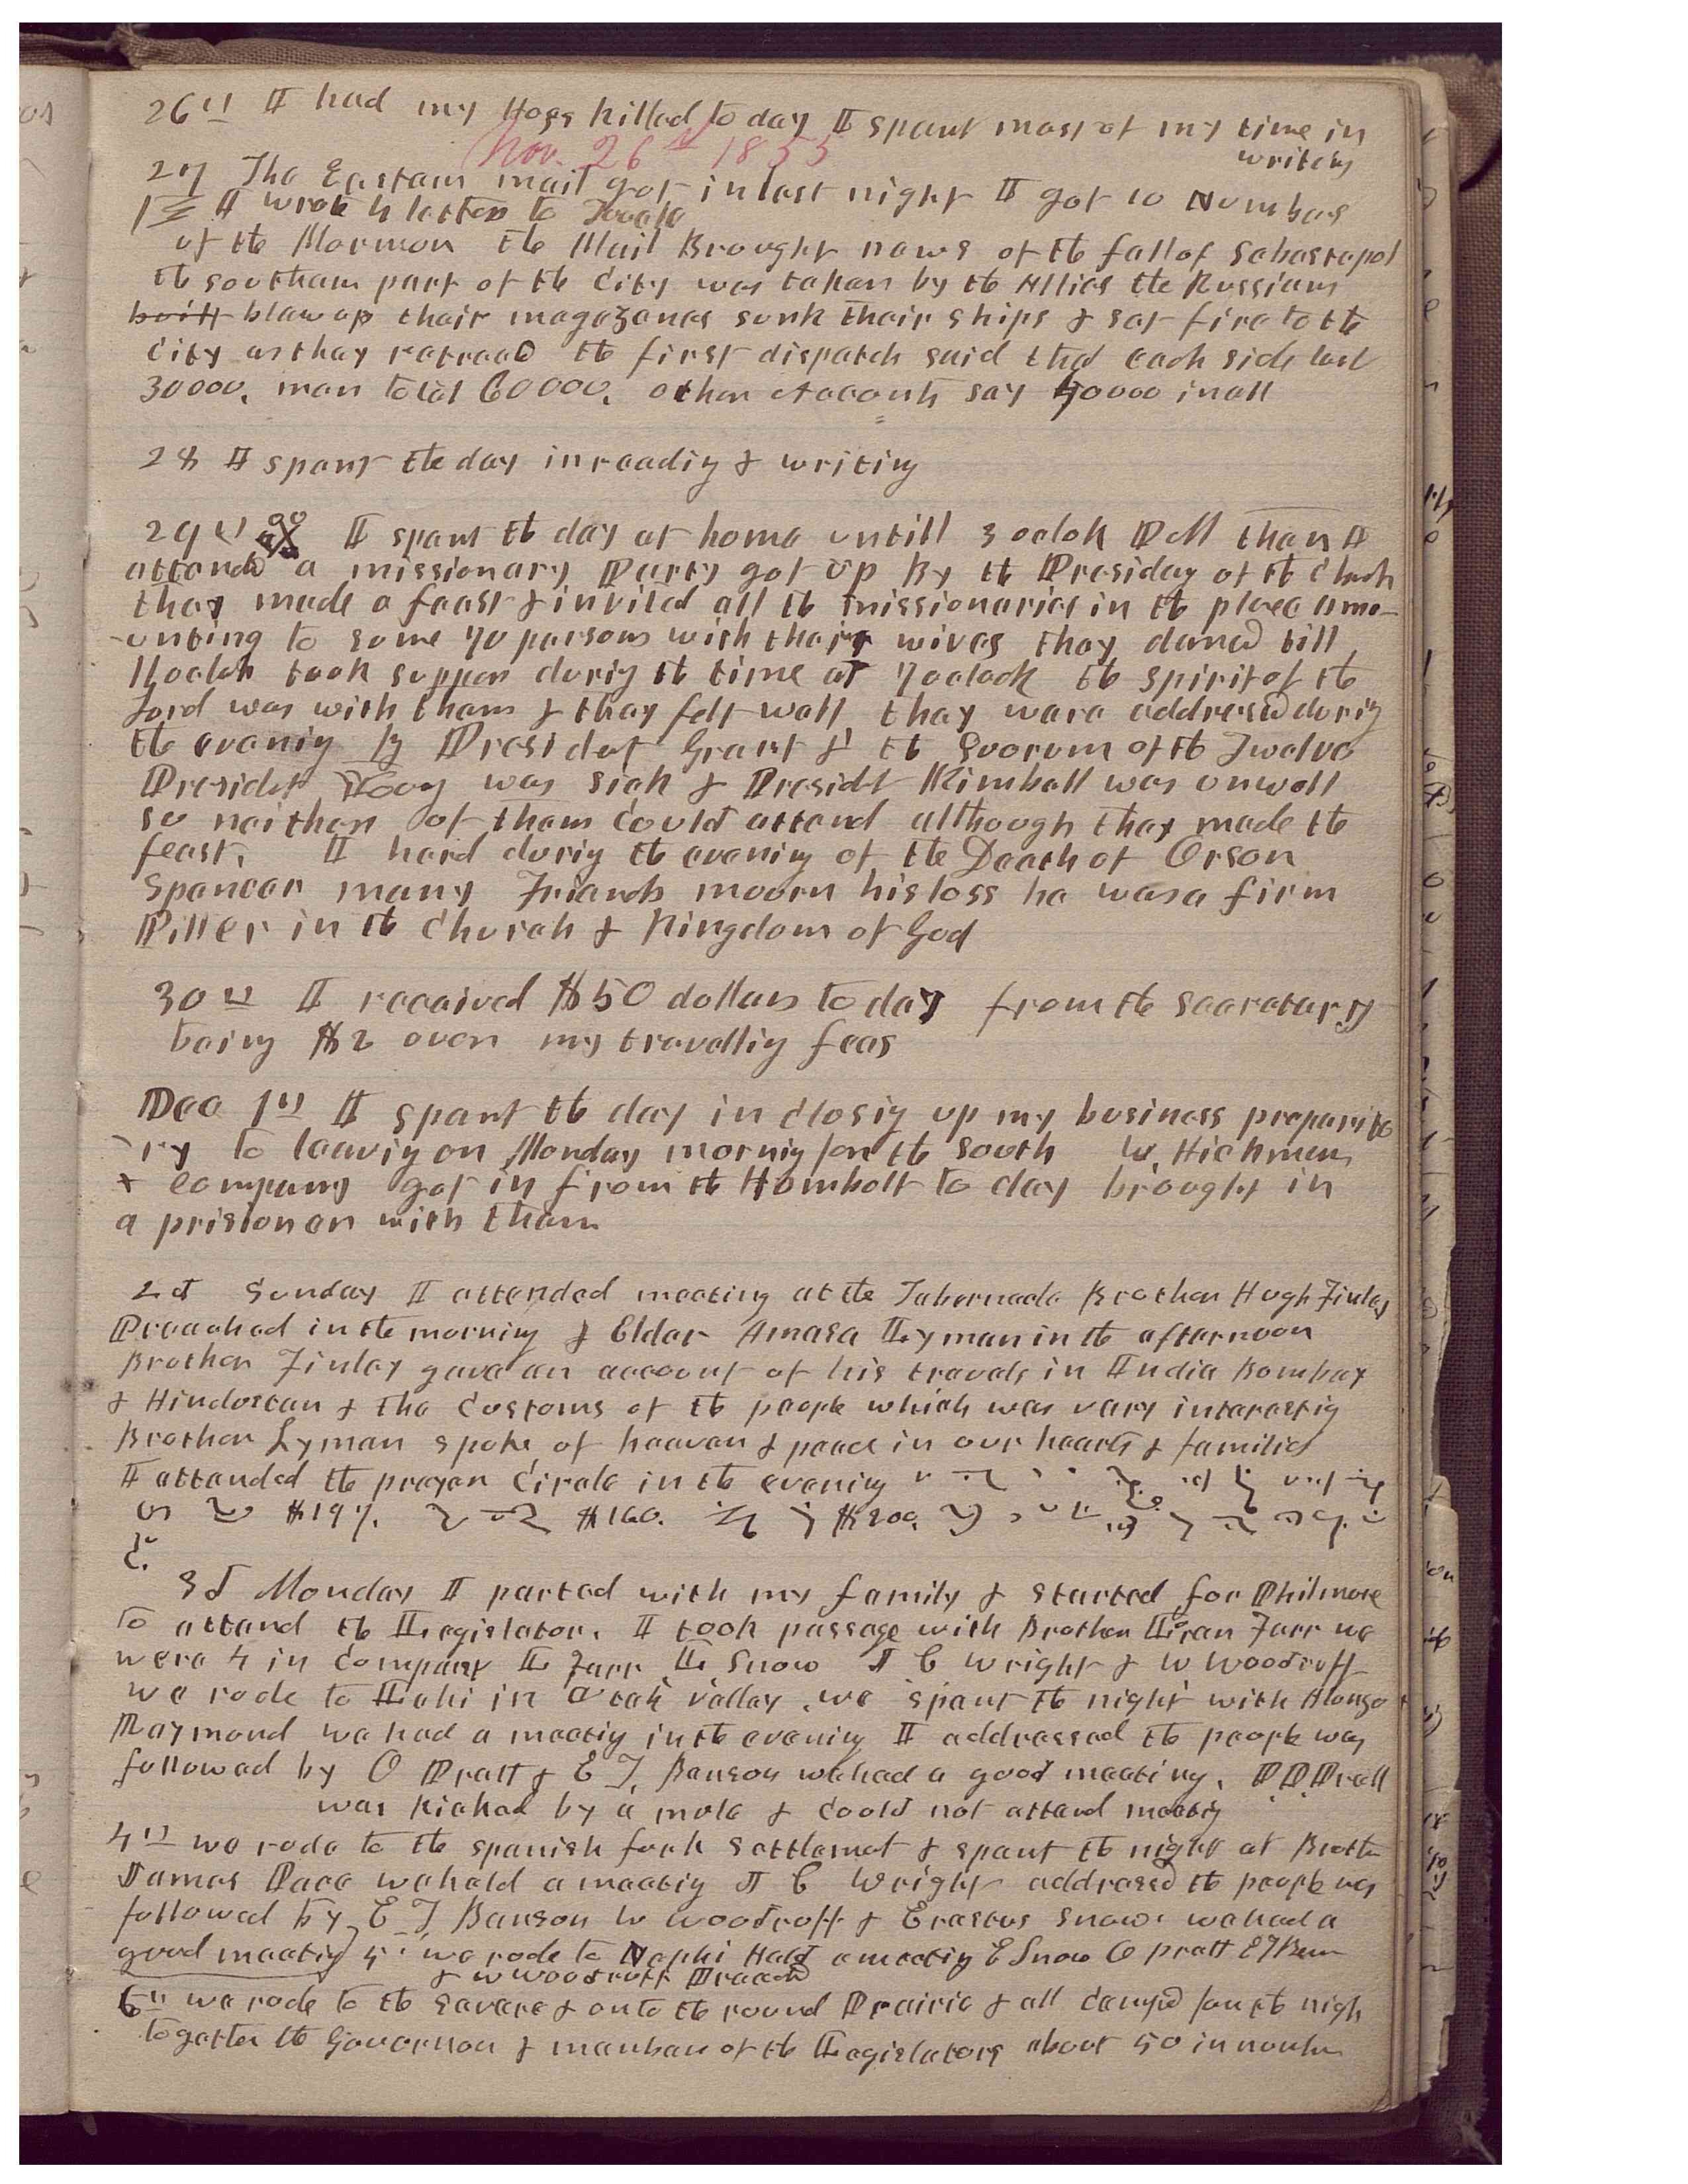 26th I had my Hogs killed to day I spent most of my time in
writing
Nov. 26th 1855
27 The Eastern mail got in last night I got 10 Numbers
I wrote 4 letters to Tooele
of the Mormon the Mail Brought news of the fall of Sebastopol
the southern part of the City was taken by the Allies the Russians
built blew up their magazenes sunk their ships & set fire to the
City as they retreated the first dispatch said that each side lost
30000. men total 60000. other Accounts say 40000 in all
28 I spent the day in reading & writing
29th I spent the day at home untill 3 oclok PM then I
attended a missionary Party got up By the Presidey of the Church
they made a feast & invited all the missionaries in the place amo-
-unting to some 70 persons with their wives they danced till
11 oclok took supper durig the time at 7 oclock the spirit of the
Lord was with them & they felt well they were addressed durig
the evenig by Presidet Grant & the Quorum of the Twelve
Presidet Young was sick & Presidt Kimball was unwell
so neither of them Could attend although they made the
feast. I herd durig the evenig of the Death of Orson
Spencer many Friends moorn his loss he was a firm
Piller in the Church & Kingdom of God
30th I received $50 dollars to day from the Secretary
being $2 over my travelling fees
Dec 1st I spent the day in Closig up my business preparito
-ry to leavig on Monday mornig for the South W. Hickmen
& company got in from the Humbolt to day brought in
a prisioner with them
2d Sunday I attended meeting at the Tabernacle Brother Hugh Finlay
Preached in the morning & Elder Amasa Lyman in the afternoon
Brother Finlay gave an account of his travels in India Bombay
& Hindostan & the Customs of the people which was very interestig
Brother Lyman spoke of heaven & peace in our hearts & families
I attended the prayer Circle in the evening
$197. $160. $200.
3d Monday I parted with my family & started for Philmore
to attend the Legislator. I took passage with Brother Loran Farr we
were 4 in Company L Farr L Snow J C Wright & W Woodruff
we rode to Lehi in Utah valley. we spent the night with Alonzo
Raymond we had a meetig in the evenig I addressed the people was
followed by O Pratt & E T. Benson we had a good meeting. P. P. Pratt
was kicked by a mule & Could not attend meetig
4th we rode to the Spanish fork Settlemet & spent the night at Brother
James Pace we held a meetig J C Wright addressed the people was
followed by E T Benson W Woodruff & Erastus Snow. we had a
good meetig 5th we rode to Nephi Held a meetig E Snow O pratt E T Ben
& W Woodruff Preached
6th we rode to the Severe & on to the round Prairie & all camped for the nigh
togetter the Governor & members of the Legislators about 50 in number